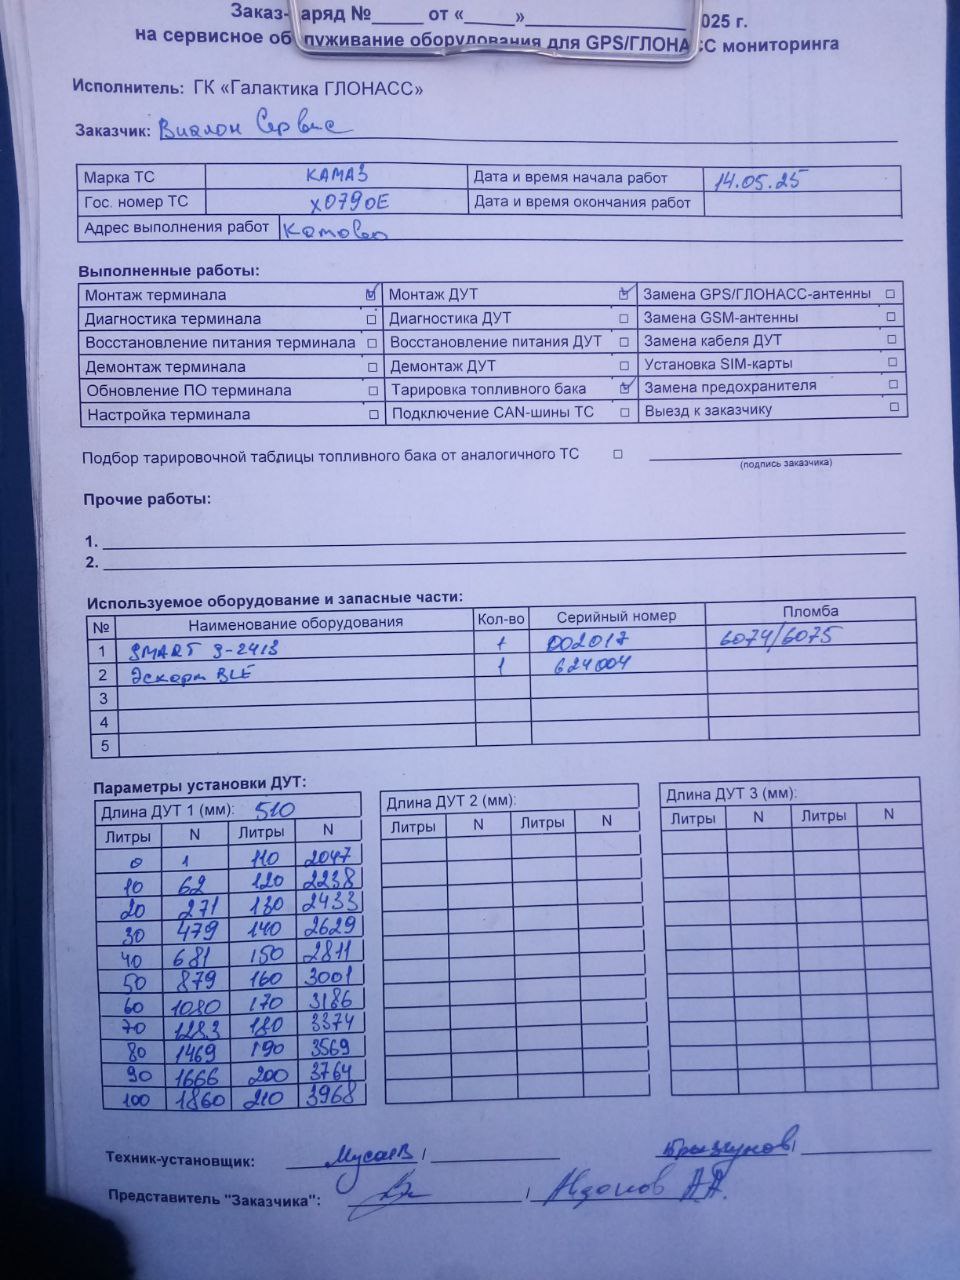 Заказ-наряд №_____ от «_____»_______________ 2025 г.
на сервисное обслуживание оборудования для GPS/ГЛОНАСС мониторинга
Исполнитель: ГК «Галактика ГЛОНАСС»
Заказчик: Виалон Сервис
Марка ТС КАМАЗ Дата и время начала работ 14.05.25
Гос. номер ТС х079ОЕ Дата и время окончания работ
Адрес выполнения работ
Выполненные работы:
Монтаж терминала ☑ Монтаж ДУТ ☑ Замена GPS/ГЛОНАСС-антенны ☐
Диагностика терминала ☐ Диагностика ДУТ ☐ Замена GSM-антенны ☐
Восстановление питания терминала ☐ Восстановление питания ДУТ ☐ Замена кабеля ДУТ ☐
Демонтаж терминала ☐ Демонтаж ДУТ ☐ Установка SIM-карты ☐
Обновление ПО терминала ☐ Тарировка топливного бака ☑ Замена предохранителя ☐
Настройка терминала ☐ Подключение CAN-шины ТС ☐ Выезд к заказчику ☐
Подбор тарировочной таблицы топливного бака от аналогичного ТС ☐
(подпись заказчика)
Прочие работы:
1.
2.
Используемое оборудование и запасные части:
№ Наименование оборудования Кол-во Серийный номер Пломба
1 SMART S-2413 1 002017 6074/6075
2 Эскорт BLE 1 624004
3
4
5
Параметры установки ДУТ:
Длина ДУТ 1 (мм): 510 Длина ДУТ 2 (мм): Длина ДУТ 3 (мм):
Литры N Литры N Литры N Литры N Литры N Литры N
0 1 110 2047
10 62 120 2238
20 271 130 2433
30 479 140 2629
40 681 150 2811
50 879 160 3001
60 1080 170 3186
70 1283 180 3374
80 1469 190 3569
90 1666 200 3764
100 1860 210 3968
Техник-установщик: Мусаев /
Представитель "Заказчика": / А.А.